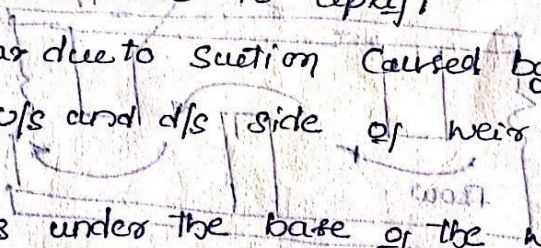 due to suction caused
u/s and d/s side of weir
under the base of the